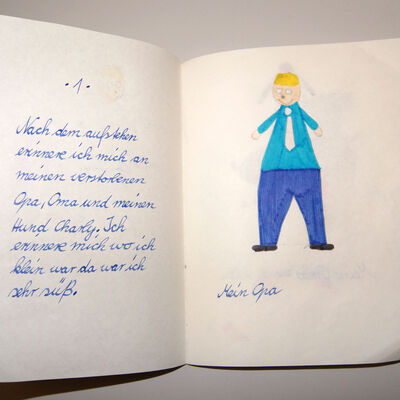 · 1 ·
Nach dem aufstehen
erinnere ich mich an
meinen verstorbenen
Opa, Oma und meinen
Hund Charly. Ich
erinnere mich wo ich
klein war da war ich
sehr süß.
Mein Opa